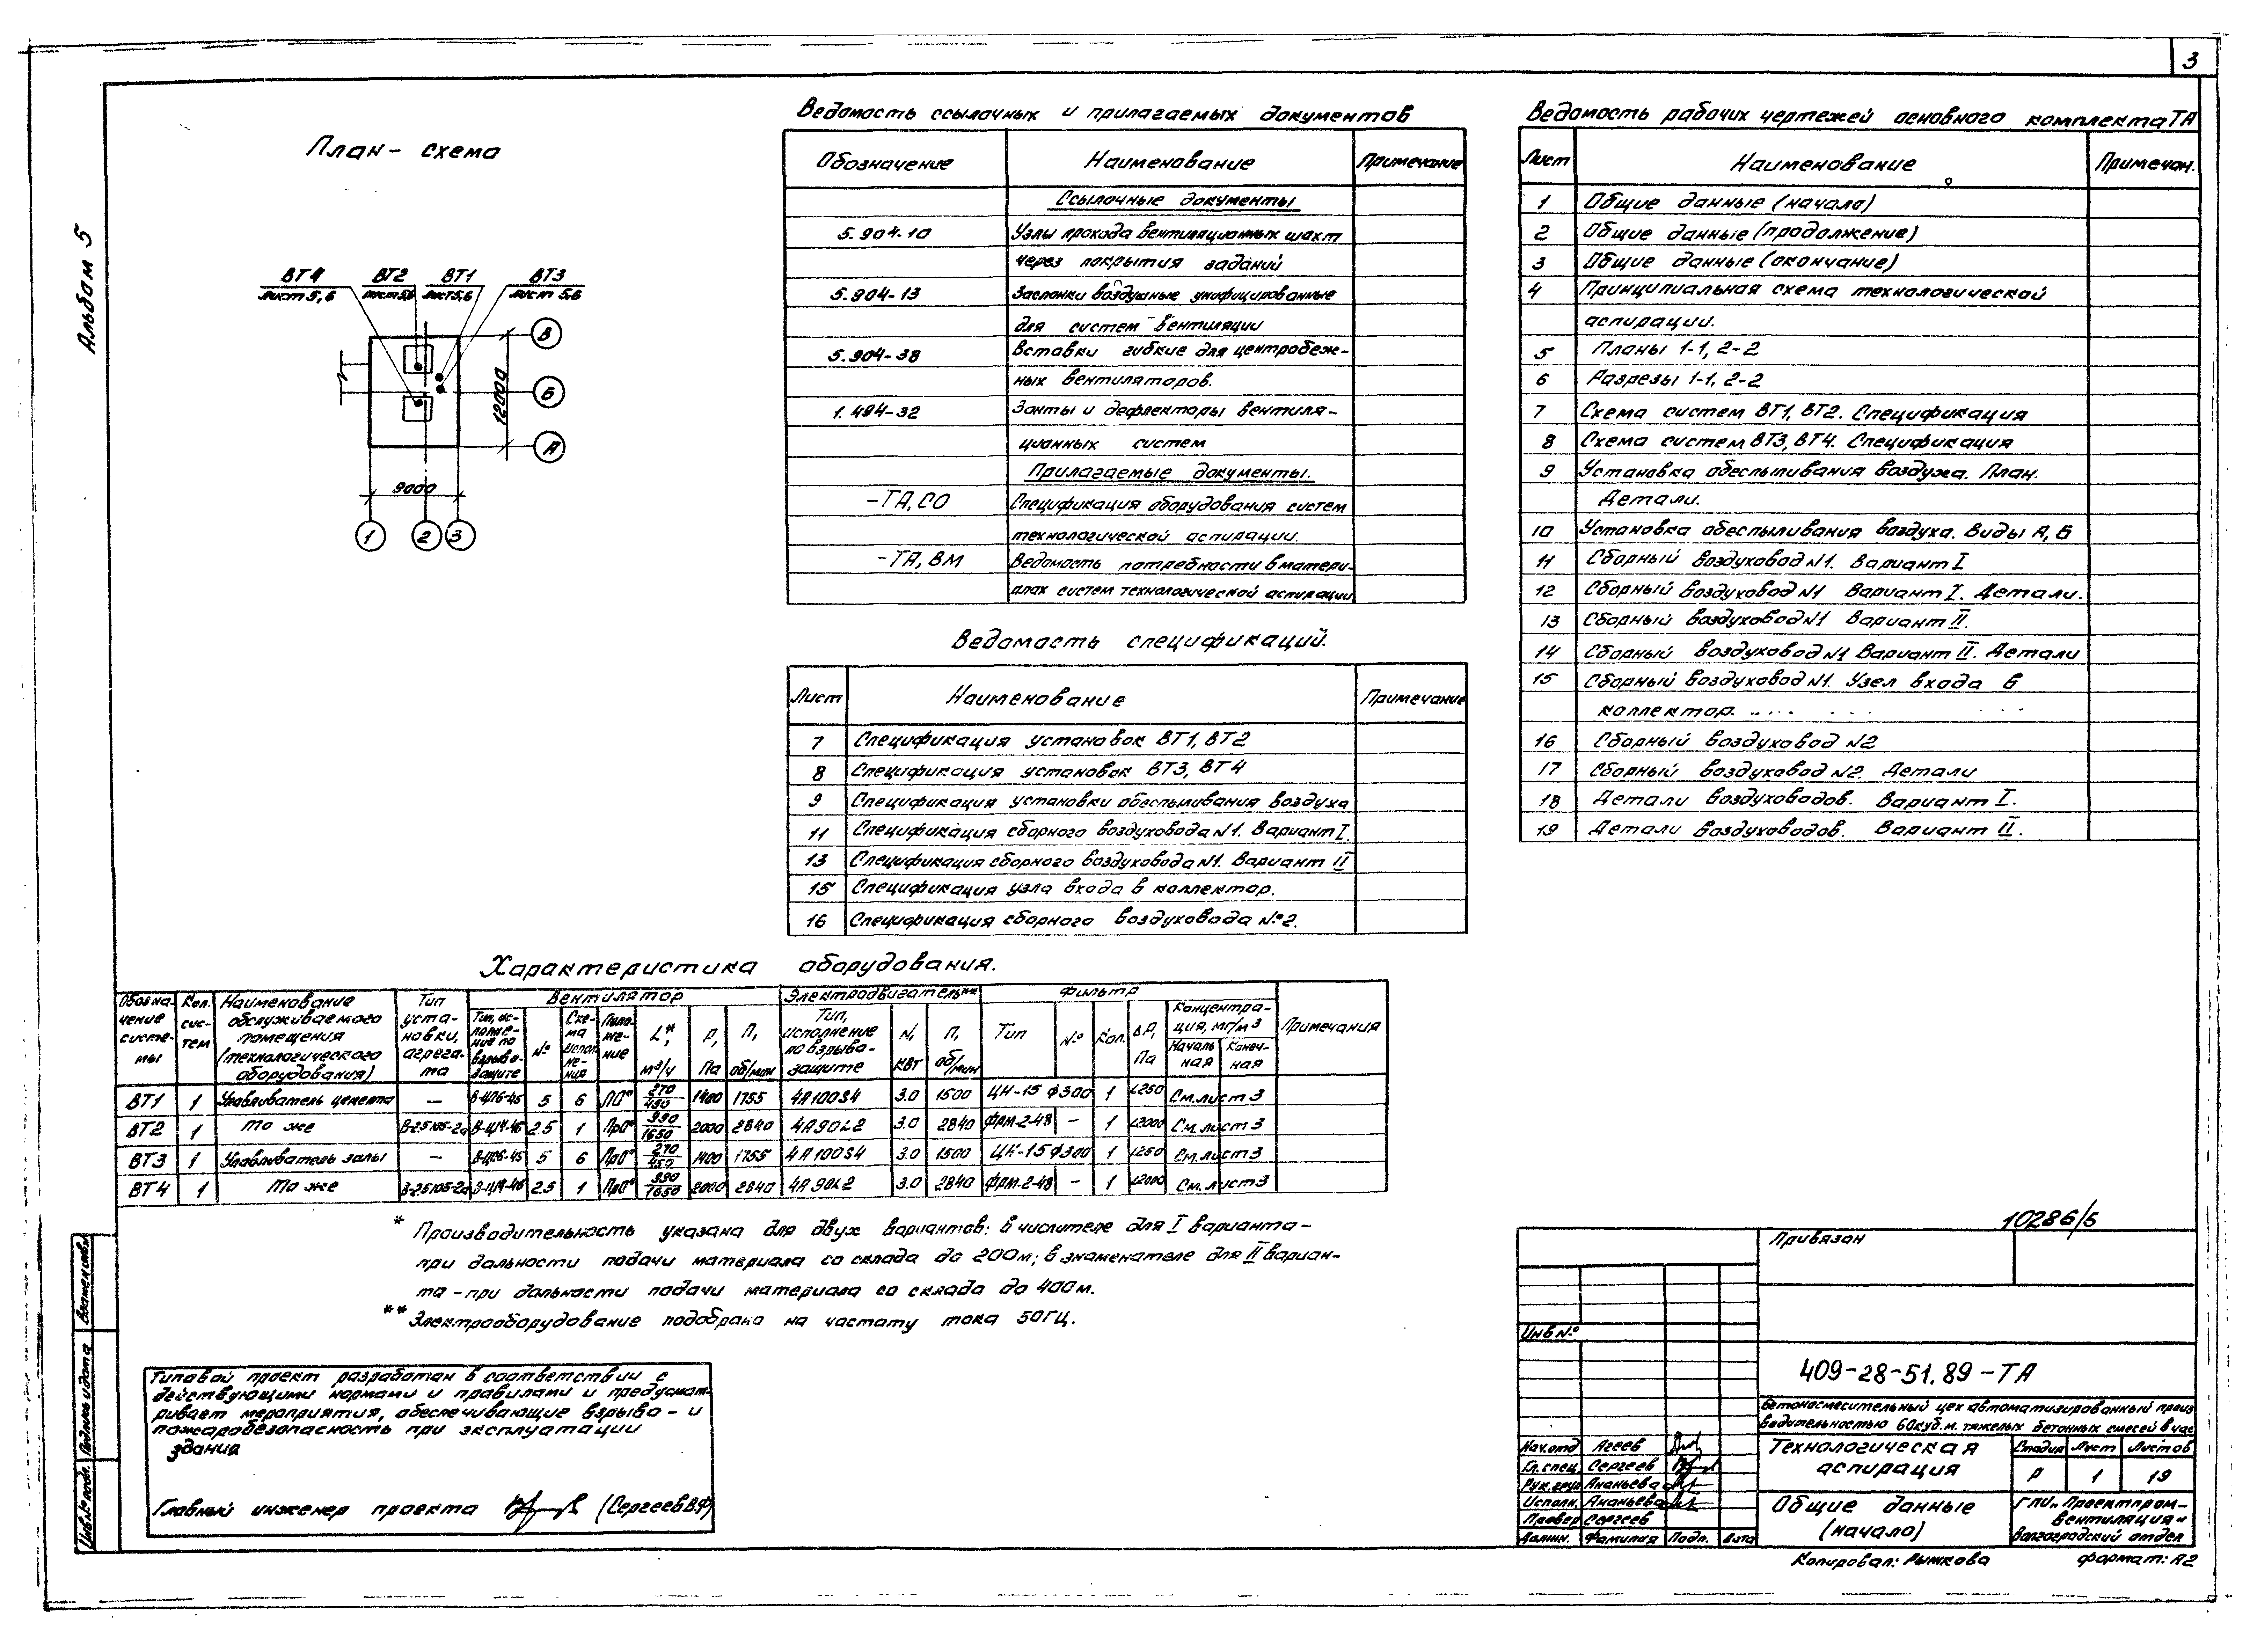 3
Альбом 5
План-схема
ВТ4 ВТ2 ВТ1 ВТ3
лист 5,6 лист 5,6 лист 5,6 лист 5,6
В
Б
А
12000
9000
1 2 3
Ведомость ссылочных и прилагаемых документов
Обозначение Наименование Примечание
Ссылочные документы
5.904-10 Узлы прохода вентиляционных шахт
через покрытия зданий
5.904-13 Заслонки воздушные унифицированные
для систем вентиляции
5.904-38 Вставки гибкие для центробеж-
ных вентиляторов.
1.494-32 Зонты и дефлекторы вентиля-
ционных систем
Прилагаемые документы.
-ТА, СО Спецификация оборудования систем
технологической аспирации.
-ТА, ВМ Ведомость потребности в матери-
алах систем технологической аспирации
Ведомость спецификаций.
Лист Наименование Примечание
7 Спецификация установок ВТ1, ВТ2
8 Спецификация установок ВТ3, ВТ4
9 Спецификация установки обеспыливания воздуха
11 Спецификация сборного воздуховода N1. Вариант I.
13 Спецификация сборного воздуховода N1. Вариант II
15 Спецификация узла входа в коллектор.
16 Спецификация сборного воздуховода №2.
Ведомость рабочих чертежей основного комплекта ТА
Лист Наименование Примечан.
1 Общие данные (начало)
2 Общие данные (продолжение)
3 Общие данные (окончание)
4 Принципиальная схема технологической
аспирации.
5 Планы 1-1, 2-2
6 Разрезы 1-1, 2-2
7 Схема систем ВТ1, ВТ2. Спецификация
8 Схема систем ВТ3, ВТ4. Спецификация
9 Установка обеспыливания воздуха. План.
Детали.
10 Установка обеспыливания воздуха. Виды А, Б
11 Сборный воздуховод N1. Вариант I
12 Сборный воздуховод N1 Вариант I. Детали.
13 Сборный воздуховод N1 Вариант II.
14 Сборный воздуховод N1 Вариант II. Детали
15 Сборный воздуховод N1. Узел входа в
коллектор.
16 Сборный воздуховод N2
17 Сборный воздуховод N2. Детали
18 Детали воздуховодов. Вариант I.
19 Детали воздуховодов. Вариант II.
Характеристика оборудования.
Обозна-
чение
систе-
мы
Кол.
сис-
тем
Наименование
обслуживаемого
помещения
(технологического
оборудования)
Тип
уста-
новки,
агрега-
та
Вентилятор
Тип, ис-
полне-
ние по
взрыво-
защите
№
Схе-
ма
испол
не-
ния
Поло-
же-
ние
L,*
м³/ч
Р,
Па
П,
об/мин
Электродвигатель**
Тип,
исполнение
по взрыво-
защите
N,
кВт
П,
об/мин
Фильтр
Тип
№
Кол.
ΔР,
Па
Концентра-
ция, мг/м³
Началь
ная
Конеч-
ная
Примечания
ВТ1 1 Улавливатель цемента — В-ЦП6-45 5 6 ПО° 270/450 1400 1755 4А100S4 3.0 1500 ЦН-15 ф300 1 1250 См. лист 3
ВТ2 1 То же В-2.5105-2а В-Ц14-46 2.5 1 Пр0° 990/1650 2000 2840 4А90L2 3.0 2840 ФРМ-2-48 — 1 12000 См. лист 3
ВТ3 1 Улавливатель золы — В-ЦП6-45 5 6 Пр0° 270/450 1400 1755 4А100S4 3.0 1500 ЦН-15 ф300 1 1250 См. лист 3
ВТ4 1 То же В-2.5105-2а В-Ц14-46 2.5 1 Пр0° 990/1650 2000 2840 4А90L2 3.0 2840 ФРМ-2-48 — 1 12000 См. лист 3
* Производительность указана для двух вариантов: в числителе для I варианта-
при дальности подачи материала со склада до 200м; в знаменателе для II вариан-
та-при дальности подачи материала со склада до 400м.
** Электрооборудование подобрано на частоту тока 50ГЦ.
Типовой проект разработан в соответствии с
действующими нормами и правилами и предусмат-
ривает мероприятия, обеспечивающие взрыво- и
пожаробезопасность при эксплуатации
здания
Главный инженер проекта (Сергеев В.Ф)
Инв.№подл. Подпись и дата Взамен инв.№
10286/5
Привязан
Инв №
409-28-51.89-ТА
Бетоносмесительный цех автоматизированный произ
водительностью 60куб.м. тяжелых бетонных смесей в час
Нач.отд Агеев
Гл.спец. Сергеев
Рук.груп Ананьева
Исполн. Ананьева
Провер Сергеев
Должн. Фамилия Подп. Дата
Технологическая
аспирация
Стадия Лист Листов
Р 1 19
Общие данные
(начало)
ГПИ „Проектпром-
вентиляция"
Волгоградский отдел
Копировал: Рымкова формат: А2